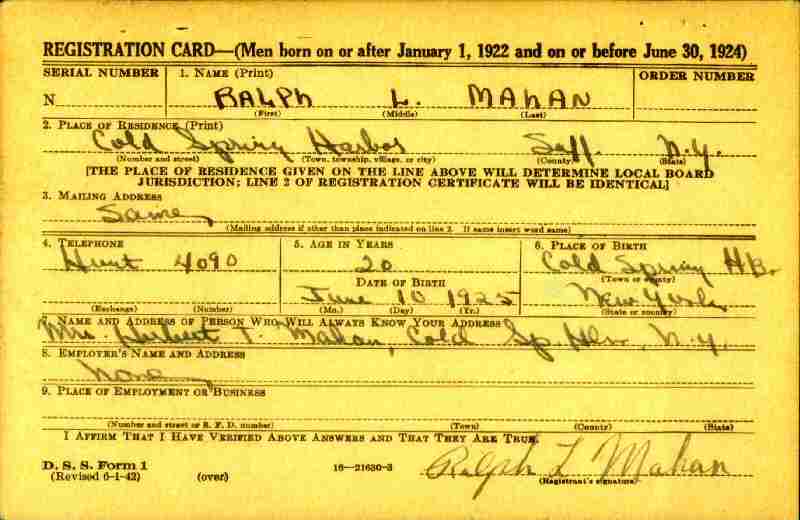 REGISTRATION CARD—(Men born on or after January 1, 1922 and on or before June 30, 1924)
SERIAL NUMBER 1. NAME (Print) ORDER NUMBER
N RALPH L. MAHAN
(First) (Middle) (Last)
2. PLACE OF RESIDENCE (Print)
Cold Spring Harbor Suff. N.Y.
(Number and street) (Town, township, village, or city) (County) (State)
[THE PLACE OF RESIDENCE GIVEN ON THE LINE ABOVE WILL DETERMINE LOCAL BOARD
JURISDICTION; LINE 2 OF REGISTRATION CERTIFICATE WILL BE IDENTICAL]
3. MAILING ADDRESS
Same
(Mailing address if other than place indicated on line 2. If same insert word same)
4. TELEPHONE 5. AGE IN YEARS 6. PLACE OF BIRTH
Hunt 4090 20 Cold Spring HBr
DATE OF BIRTH (Town or county)
June 10 1925 New York
(Exchange) (Number) (Mo.) (Day) (Yr.) (State or country)
7. NAME AND ADDRESS OF PERSON WHO WILL ALWAYS KNOW YOUR ADDRESS
Mrs. Herbert T. Mahan, Cold Sp. Hbr, N.Y.
8. EMPLOYER'S NAME AND ADDRESS
None
9. PLACE OF EMPLOYMENT OR BUSINESS
(Number and street or R. F. D. number) (Town) (County) (State)
I AFFIRM THAT I HAVE VERIFIED ABOVE ANSWERS AND THAT THEY ARE TRUE.
D. S. S. Form 1 16—21630-3 Ralph L Mahan
(Revised 6-1-42) (over) (Registrant's signature)